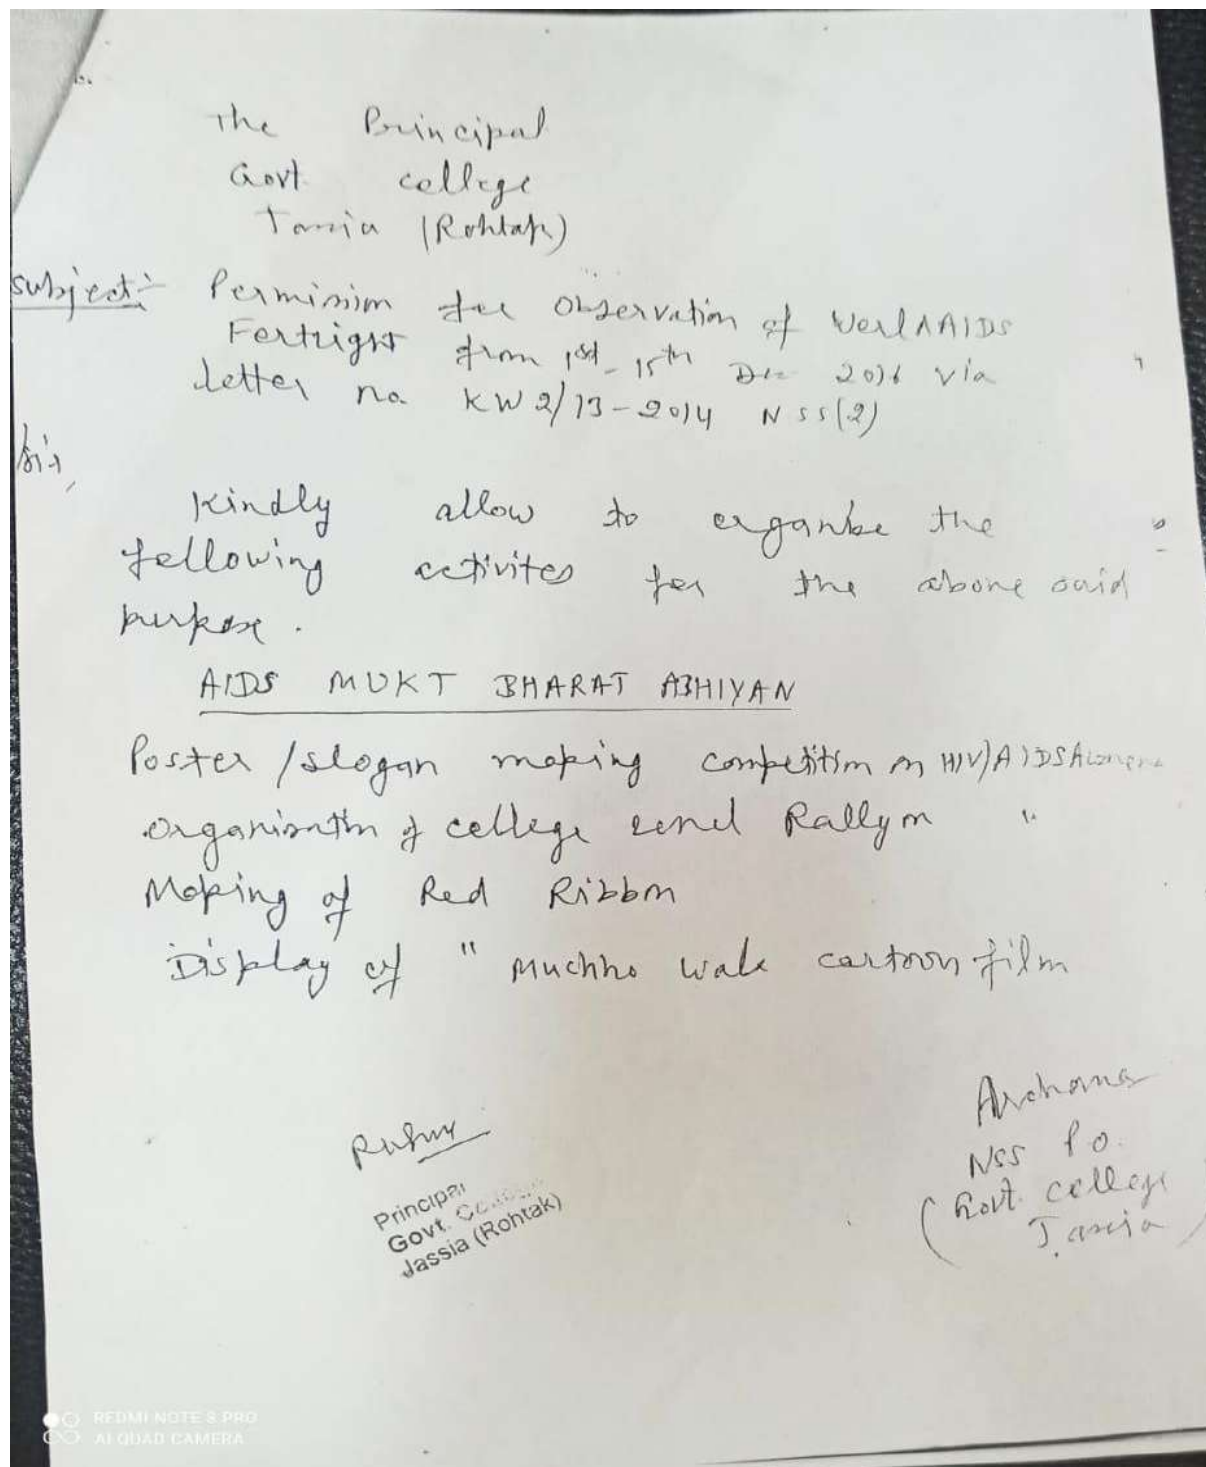 The Principal
Govt. college
Jassia (Rohtak)
Subject:- Permission for Observation of World AIDS
Fortnight from 1st - 15th Dec 2016 via
Letter no. KW2/13-2014 NSS(2)
Sir,
Kindly allow to organise the
following activites for the above said
purpose.
AIDS MUKT BHARAT ABHIYAN
Poster / slogan making competition on HIV/AIDS
Organisation of college level Rally on "
Making of Red Ribbon
Display of " Muchho wale cartoon film
Archana
NSS P.O.
(Govt. college
Jassia)
Principal
Govt.
Jassia (Rohtak)
REDMI NOTE 8 PRO
AI QUAD CAMERA